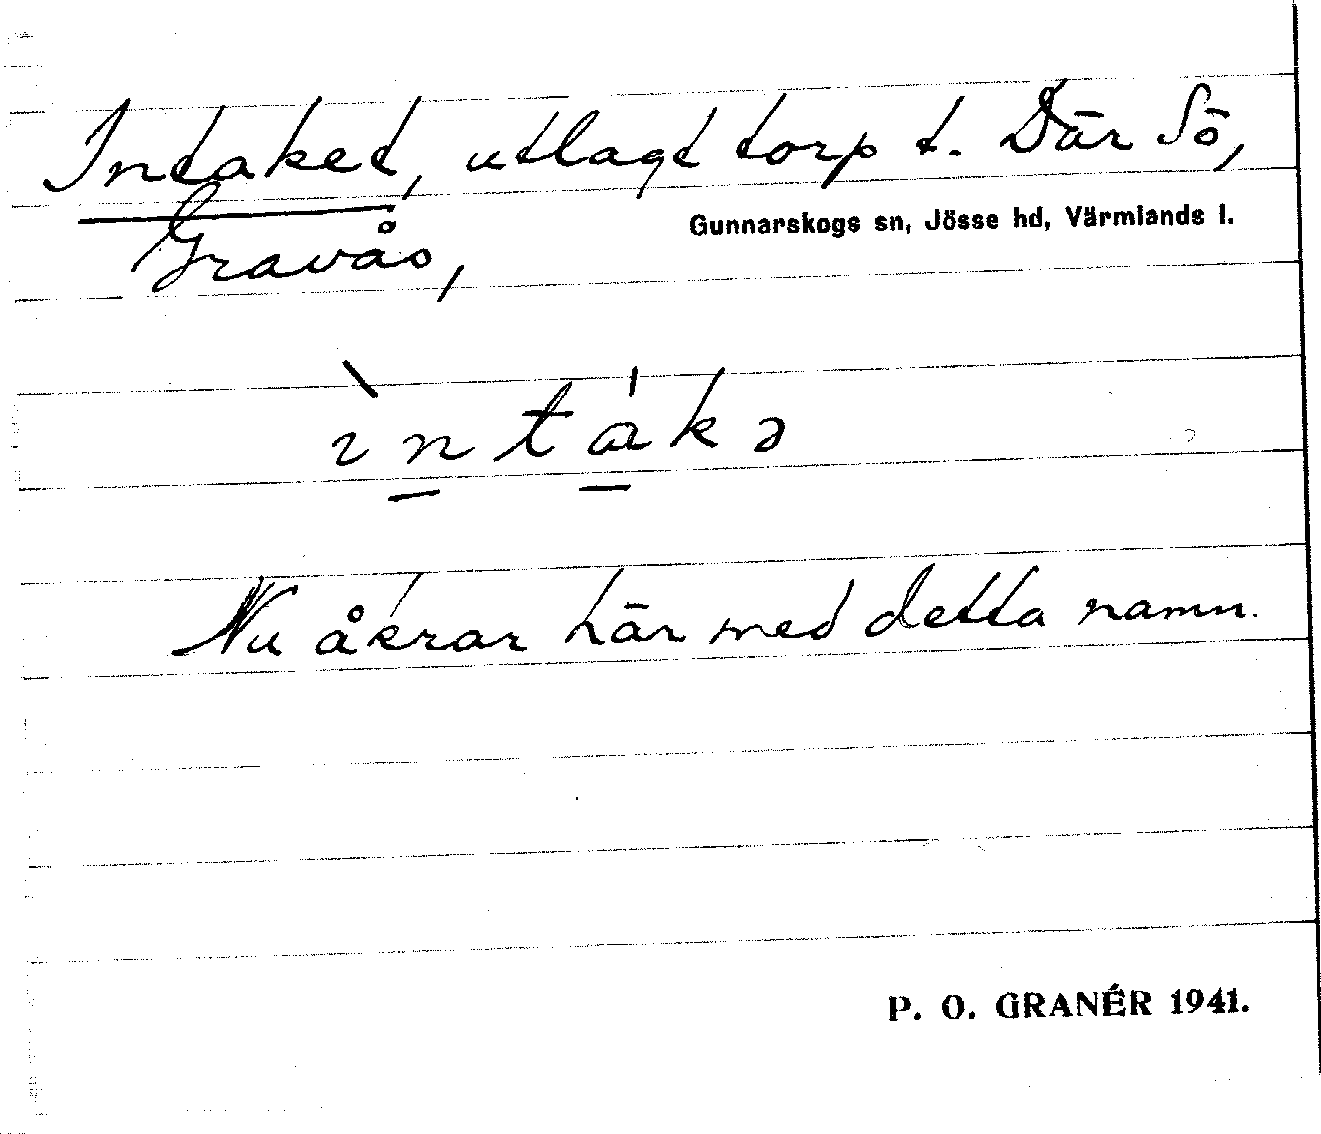 Intaket, utlagt torp t. Där Sö,
Gunnarskogs sn, Jösse hd, Värmlands l.
Gravås,
ìntákə
Nu åkrar här med detta namn.
P. O. GRANÉR 1941.